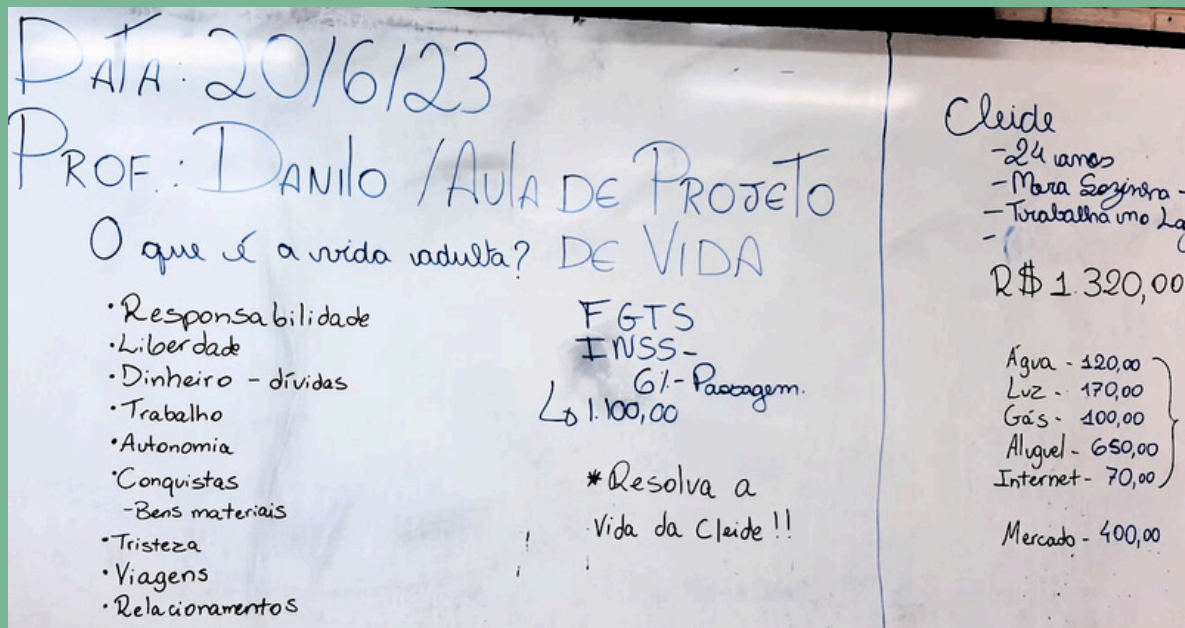 DATA: 20/6/23
PROF.: DANILO / AULA DE PROJETO
DE VIDA
O que é a vida adulta?
• Responsabilidade
• Liberdade
• Dinheiro - dívidas
• Trabalho
• Autonomia
• Conquistas
- Bens materiais
• Tristeza
• Viagens
• Relacionamentos
FGTS
INSS -
6% - Passagem.
↳ 1.100,00
* Resolva a
Vida da Cleide !!
Cleide
- 24 anos
- Mora Sozinha -
- Trabalha no
-
R$ 1.320,00
Água - 120,00
Luz - 170,00
Gás - 100,00
Aluguel - 650,00
Internet - 70,00
Mercado - 400,00